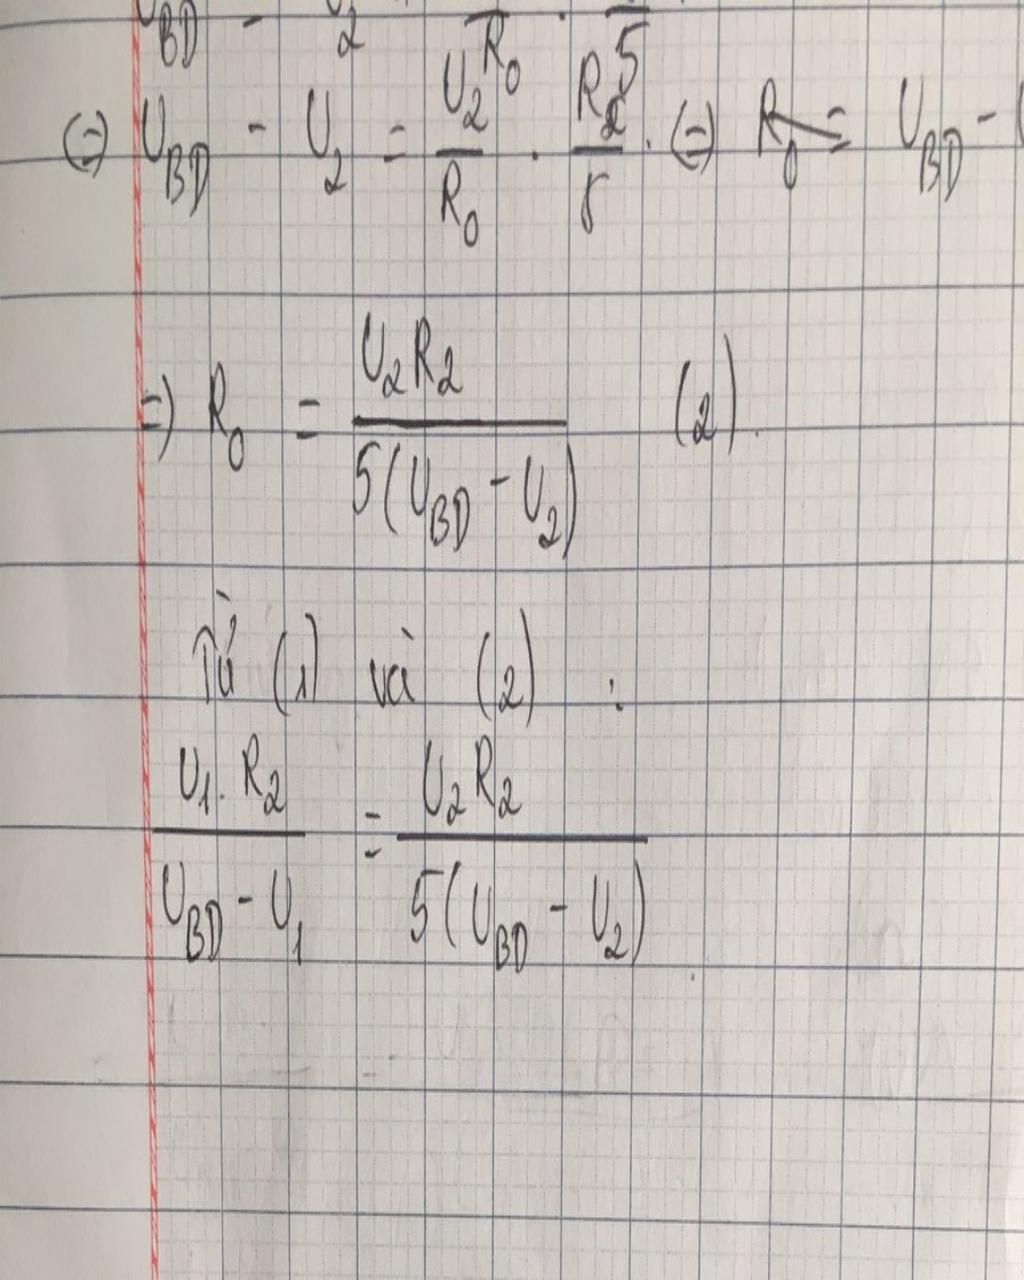 U_BD - U_2 R_0 . 5
(=) U_BD - U_2 = U_2/R_0 . R_2/5 . (=) R_0 = U_BD -
=) R_0 = U_2 R_2 / 5(U_BD - U_2) (2).
Từ (1) và (2) :
U_1 . R_2 / U_BD - U_1 = U_2 R_2 / 5(U_BD - U_2)